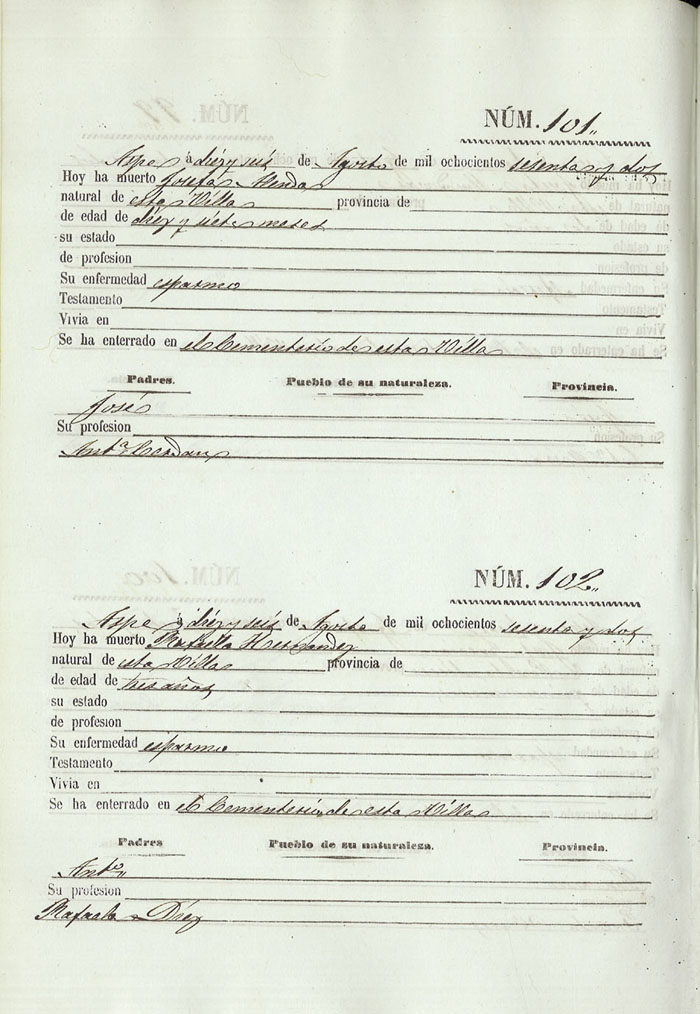 NÚM. 101„
Aspe á diez y seis de Agosto de mil ochocientos sesenta y dos
Hoy ha muerto Josefa
natural de esta Villa provincia de
de edad de diez y siete meses
su estado
de profesion
Su enfermedad espasmo
Testamento
Vivia en
Se ha enterrado en el Cementerio de esta Villa
Padres. Pueblo de su naturaleza. Provincia.
José
Su profesion
Antª Cerdan
NÚM. 102„
Aspe á diez y seis de Agosto de mil ochocientos sesenta y dos
Hoy ha muerto Rafaela Hernandez
natural de esta Villa provincia de
de edad de tres años
su estado
de profesion
Su enfermedad espasmo
Testamento
Vivia en
Se ha enterrado en el Cementerio de esta Villa
Padres Pueblo de su naturaleza. Provincia.
Antº„
Su profesion
Rafaela Díez